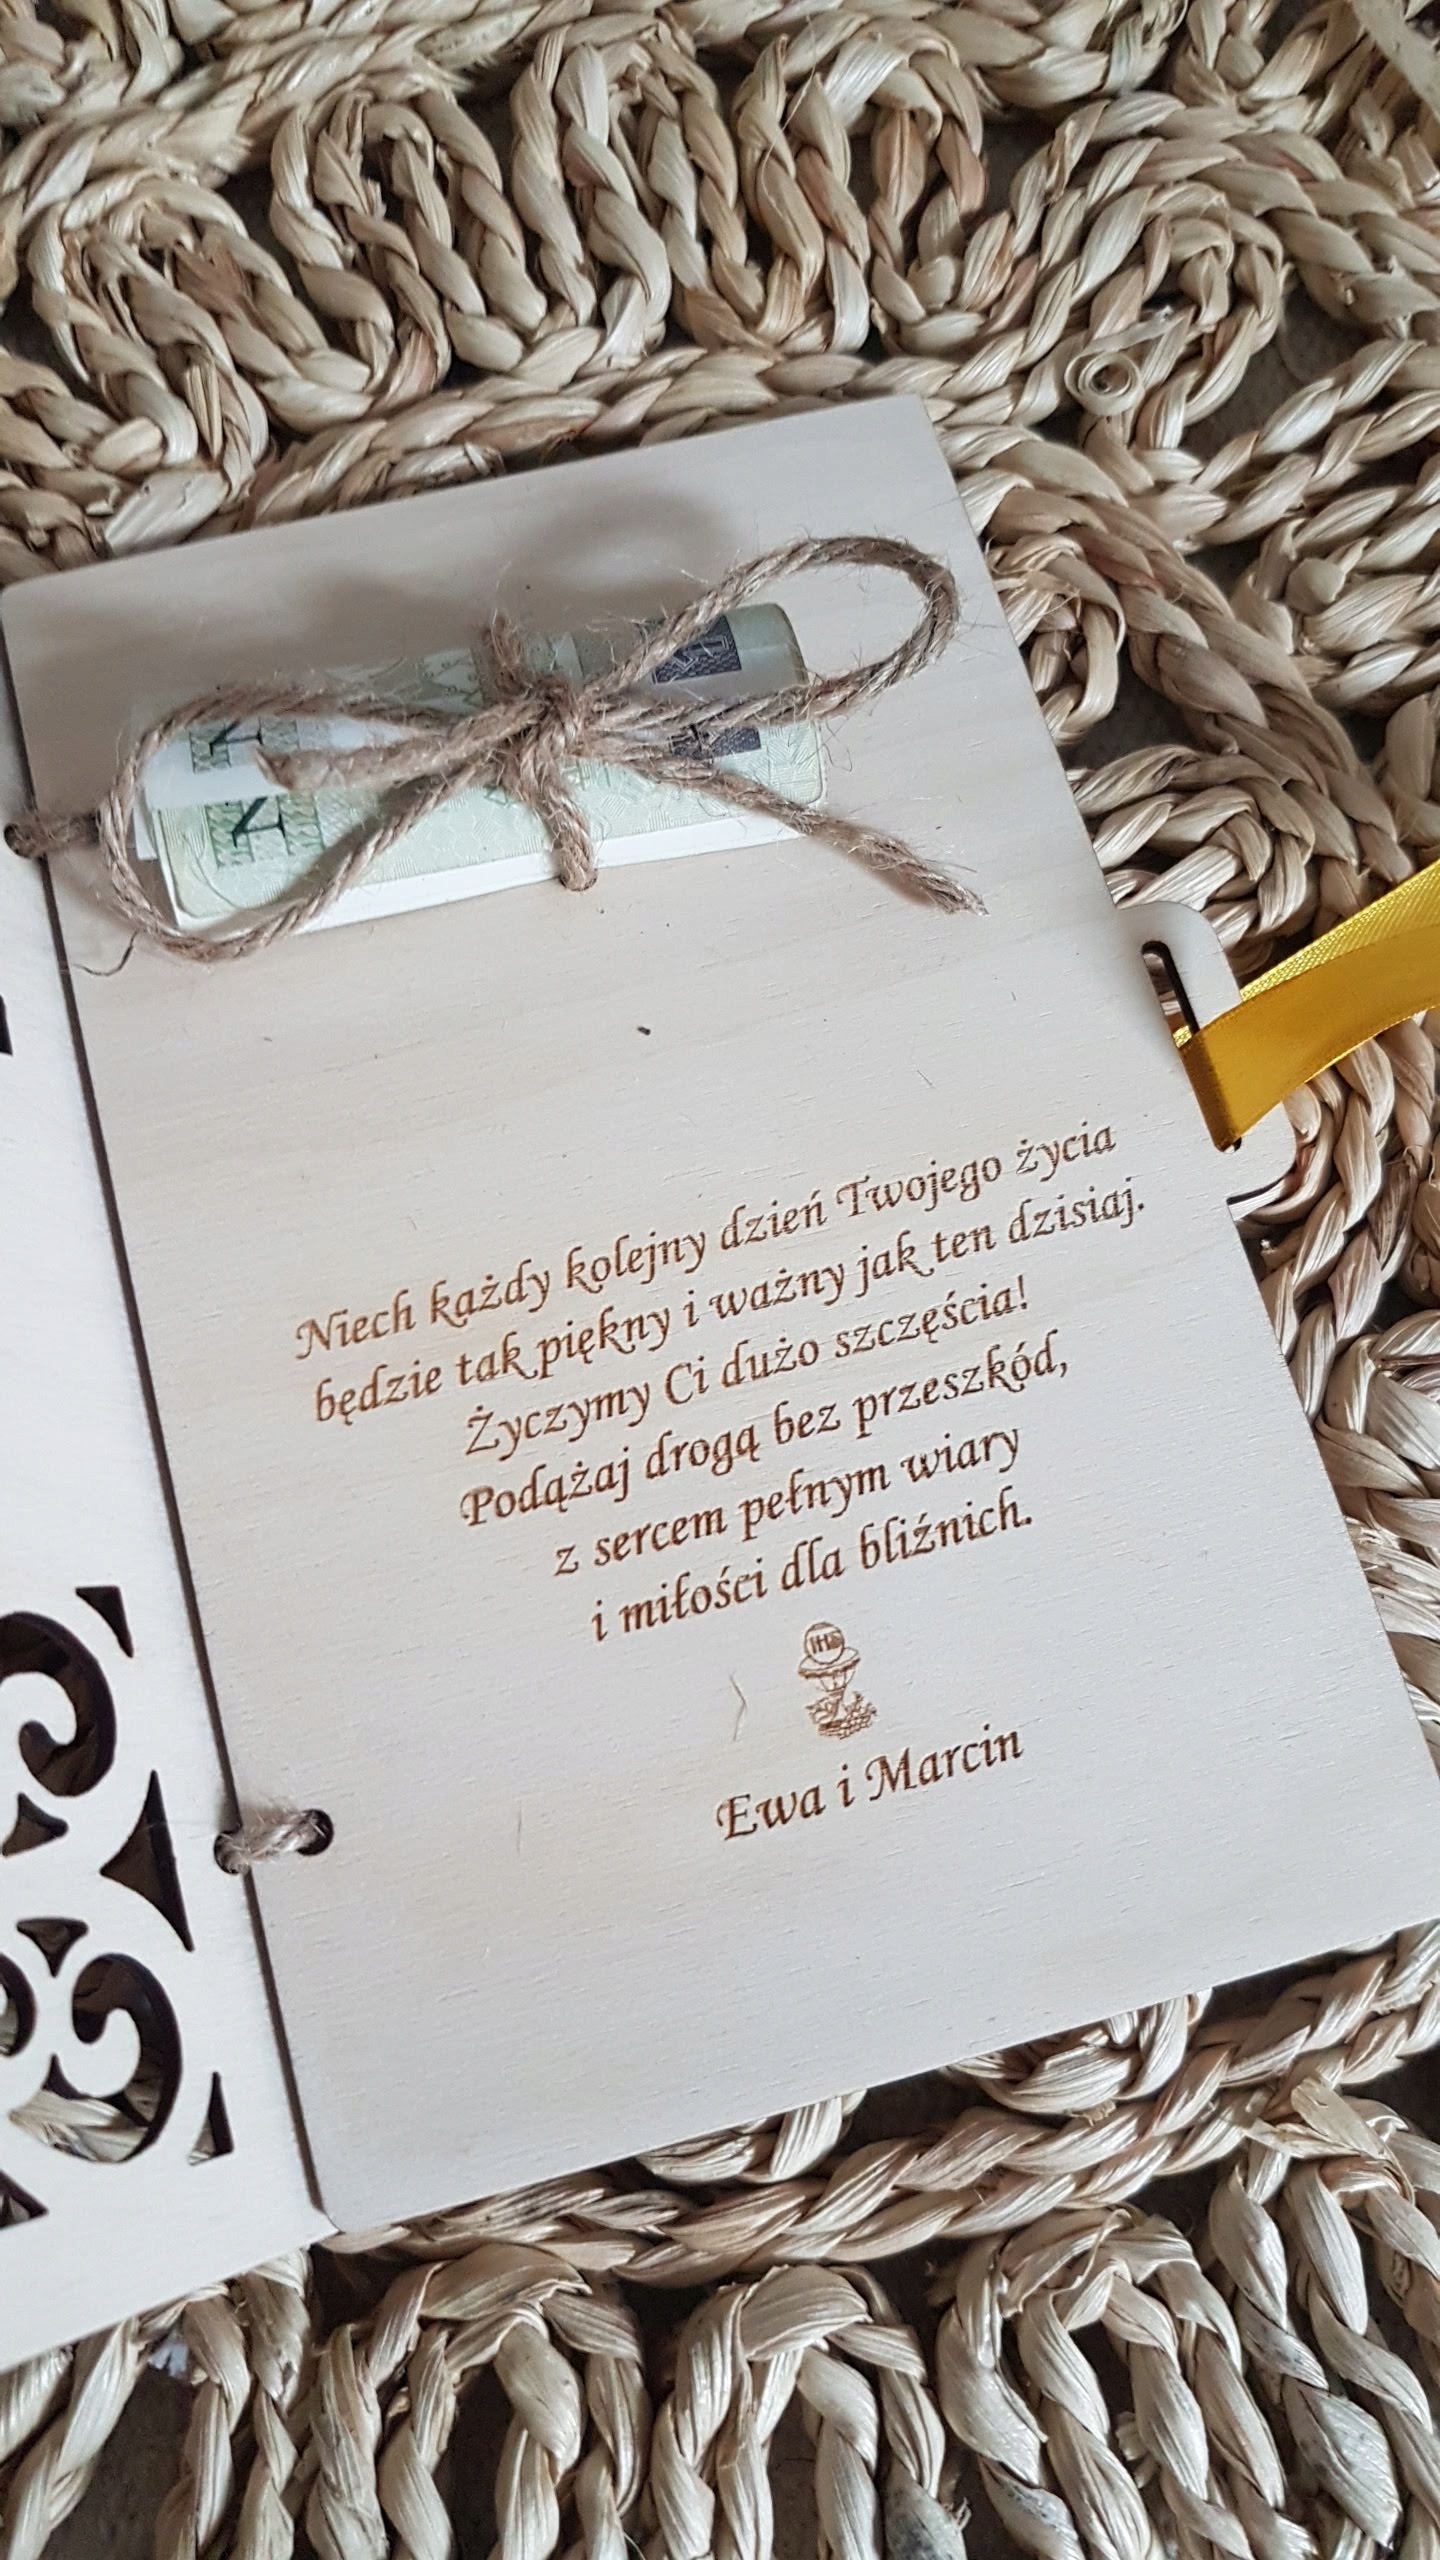 Niech każdy kolejny dzień Twojego życia
będzie tak piękny i ważny jak ten dzisiaj.
Życzymy Ci dużo szczęścia!
Podążaj drogą bez przeszkód,
z sercem pełnym wiary
i miłości dla bliźnich.
IHS
Ewa i Marcin